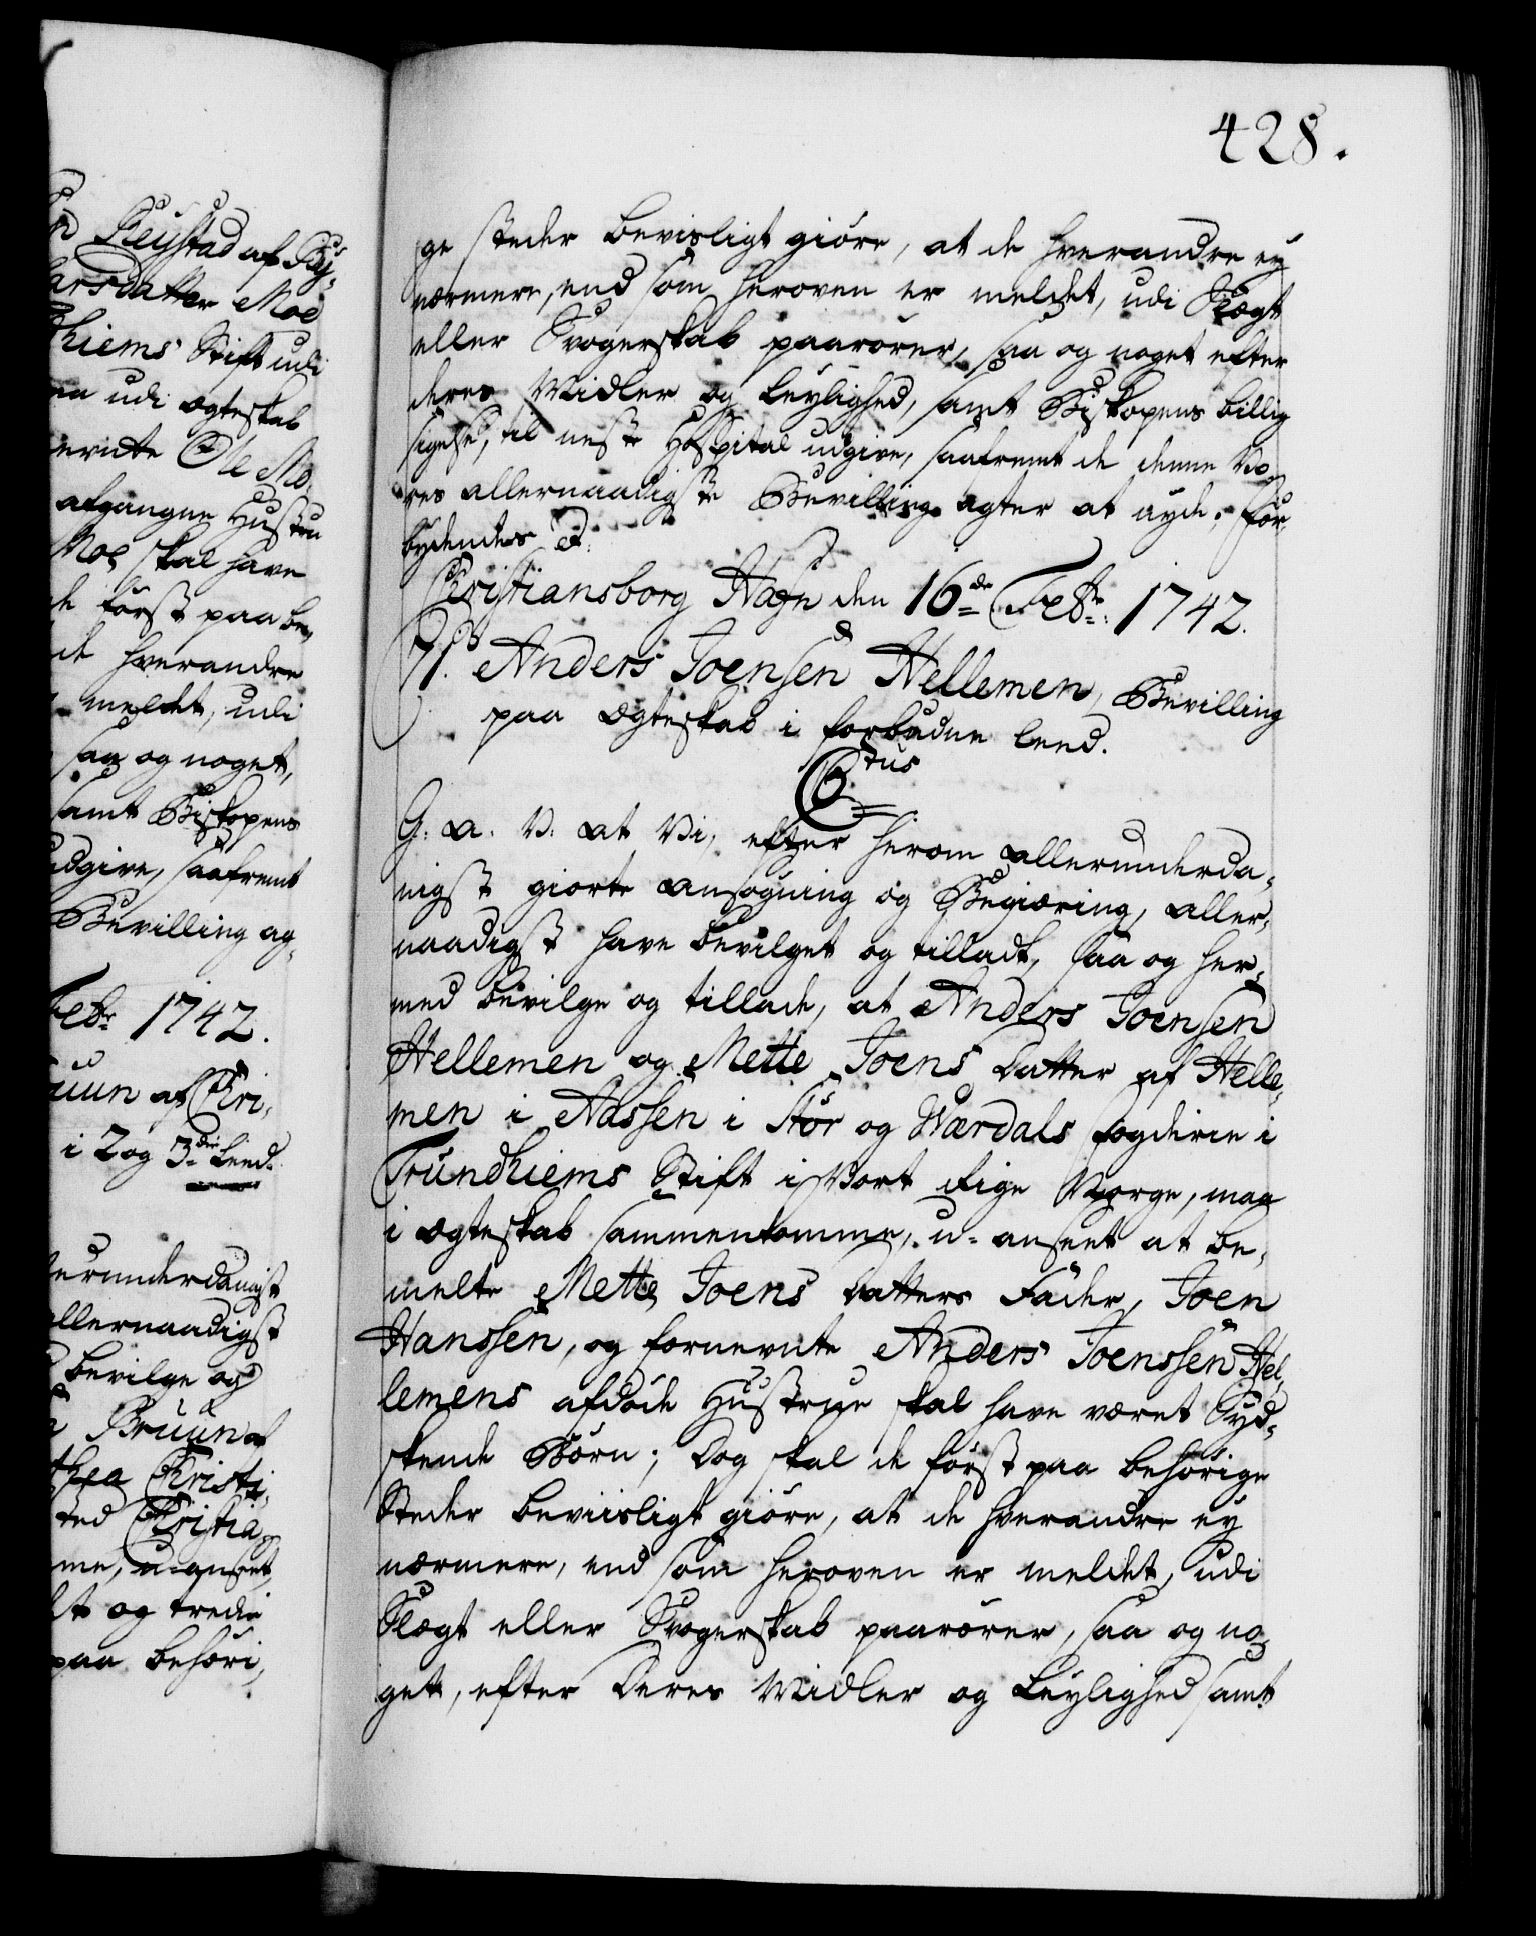 n Reistad af By-
arsdatter Moe
hiems Stift udi
en udi ægteskab
evnte Ole Mo-
afgangne Hustru
Moe skal have
de först paa be-
de hverandre
meldet, udi
saa og noget,
samt Biskopens
udgive, saafremt
Bevilling ag-
Febr 1742.
uun af Chri-
i 2 og 3die Leed.
lerunderdanigst
allernaadigst
bevilge og
Bruun af
thea Christi-
sted Christia-
me, u-anseet,
dt og tredie
paa behöri-
428.
ge steder bevisligt giöre, at de hverandre ey
nærmere, end som heroven er meldet, udi Slægt
eller Svogerskab paarörer, saa og noget efter
deres Midler og Leylighed, samt Biskopens billig
sigelse, til neste Hospital udgive, saafremt de denne Vo-
res allernaadigste Bevilling agter at nyde. For-
bydendes &.
Christiansborg Hafn den 16de Febr: 1742.
71. Anders Joensen Hellemen, Bevilling
paa Ægteskab i forbudne Leed.
C 6tus
G: A: V: at Vi, efter herom allerunderda-
nigst giorte ansögning og Begiæring, aller-
naadigst have bevilget og tilladt, saa og her-
med bevilge og tillade, at Anders Joensen
Hellemen og Mette Joens Datter af Helle-
men i Aassen i Stör og Værdals fogderie i
Trundhiems Stift i Vort Rige Norge, maa
i Ægteskab sammenkomme, u-anseet at be-
melte Mette Joens Datters Fader, Joen
Hanssen, og fornevnte Anders Joenssen Hel-
lemens afdöde Hustrue skal have været Syd-
skende Börn; Dog skal de först paa behörige
Steder beviisligt giöre, at de hverandre ey
nærmere, end som heroven er meldet, udi
Slægt eller Svogerskab paarörer, saa og no-
get, efter Deres Midler og Leylighed samt